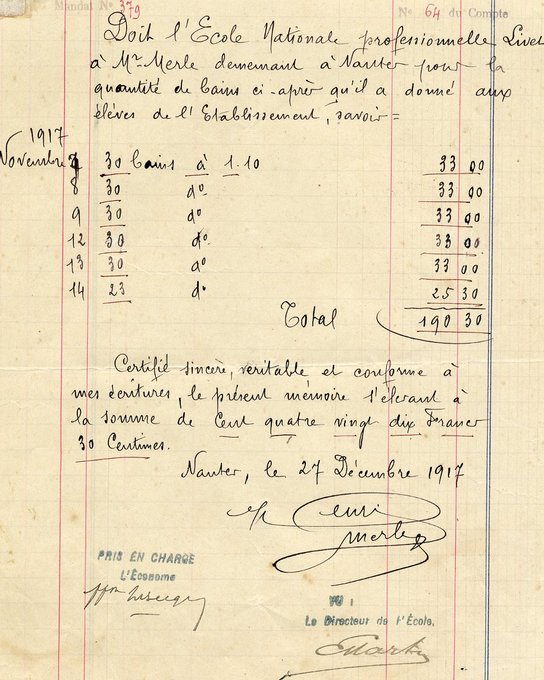 Mandat N° 379
N° 64 du Compte
Doit l'Ecole Nationale professionnelle Livet
à Mr Merle demeurant à Nantes pour la
quantité de bains ci-après qu'il a donné aux
élèves de l'Etablissement, savoir =
1917
Novembre 7 30 bains à 1.10 33 00
8 30 d° 33 00
9 30 d° 33 00
12 30 d° 33 00
13 30 d° 33 00
14 23 d° 25 30
Total 190 30
Certifié sincère, veritable et conforme à
mes écritures, le présent mémoire s'élevant à
la somme de Cent quatre vingt dix Francs
30 Centimes.
Nantes, le 27 Décembre 1917
Merle
PRIS EN CHARGE
L'Économe
VU :
Le Directeur de l'École,